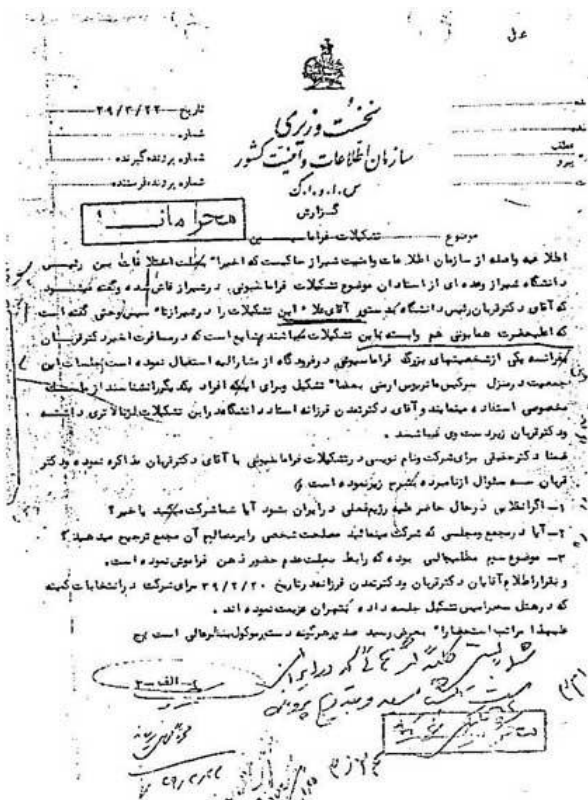 تاریخ ۳۹/۳/۲۲
شماره
شماره پرونده گیرنده
شماره پرونده فرستنده
مطلب
پیرو
نخست وزیری
سازمان اطلاعات و امنیت کشور
س.ا.و.ا.ک
گزارش
محرمانه
موضوع تشکیلات فراماسیون
اطلاعیه واصله از سازمان اطلاعات وامنیت شیراز حاکیست که اخیرا" بعلت اختلافات بین رئیس
دانشگاه شیراز وعده ای از استادان موضوع تشکیلات فراماسیونی درشیراز فاش شده وگفته میشود
که آقای دکتر قربان رئیس دانشگاه بدستور آقای علا" این تشکیلات را در شیراز تا" سیس وحتی گفته است
که اعلیحضرت همایونی هم وابسته باین تشکیلات میباشند شایع است که در مسافرت اخیر دکتر قربان
بفرانسه یکی ازشخصیتهای بزرگ فراماسیونی درفرودگاه از مشارالیه استقبال نموده است جلسات این
جمعیت درمنزل سرکیس مارتیروس ارمنی بعضا" تشکیل وبرای اینکه افراد یکدیگررا بشناسند از
مخصوصی استفاده مینمایند وآقای دکتر تمدن فرزانه استاد دانشگاه دراین تشکیلات بالاتری داشته
ودکتر قربان زیردست وی میباشد .
ضمنا دکتر حقیقی برای شرکت ونام نویسی درتشکیلات فراماسیونی با آقای دکتر قربان مذاکره نموده ودکتر
قربان سه سئوال ازنامبرده بشرح زیر نموده است
۱- اگر انقلابی درحال حاضر علیه رژیم فعلی درایران بشود آیا شما شرکت میکنید یا خیر؟
۲- آیا درمجمع ومجلسی که شرکت مینمائید مصلحت شخصی را برمصالح آن مجمع ترجیح میدهید ؟
۳- موضوع سوم مطلب جالبی بوده که رابط بعلت عدم حضور ذهن فراموش نموده است.
و بقرار اطلاع آقایان دکتر قربان ودکتر تمدن فرزانه درتاریخ ۳۹/۲/۲۰ برای شرکت در انتخابات کمیته
که در هتل تشکیل جلسه داده بتهران عزیمت نموده اند .
علیهذا مراتب استحضارا" بعرض رسید صدور هرگونه دستور موکول بنظر عالی است